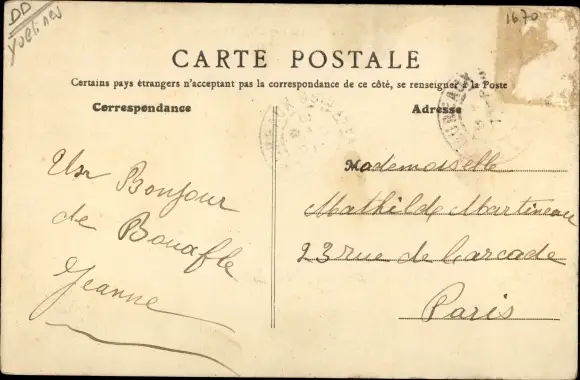 DD
Yvelines
1670
CARTE POSTALE
Certains pays étrangers n'acceptant pas la correspondance de ce côté, se renseigner à la Poste
Correspondance
Adresse
Un Bonjour
de Bouafle
Jeanne
Mademoiselle
Mathilde Martineau
23 rue de l'arcade
Paris